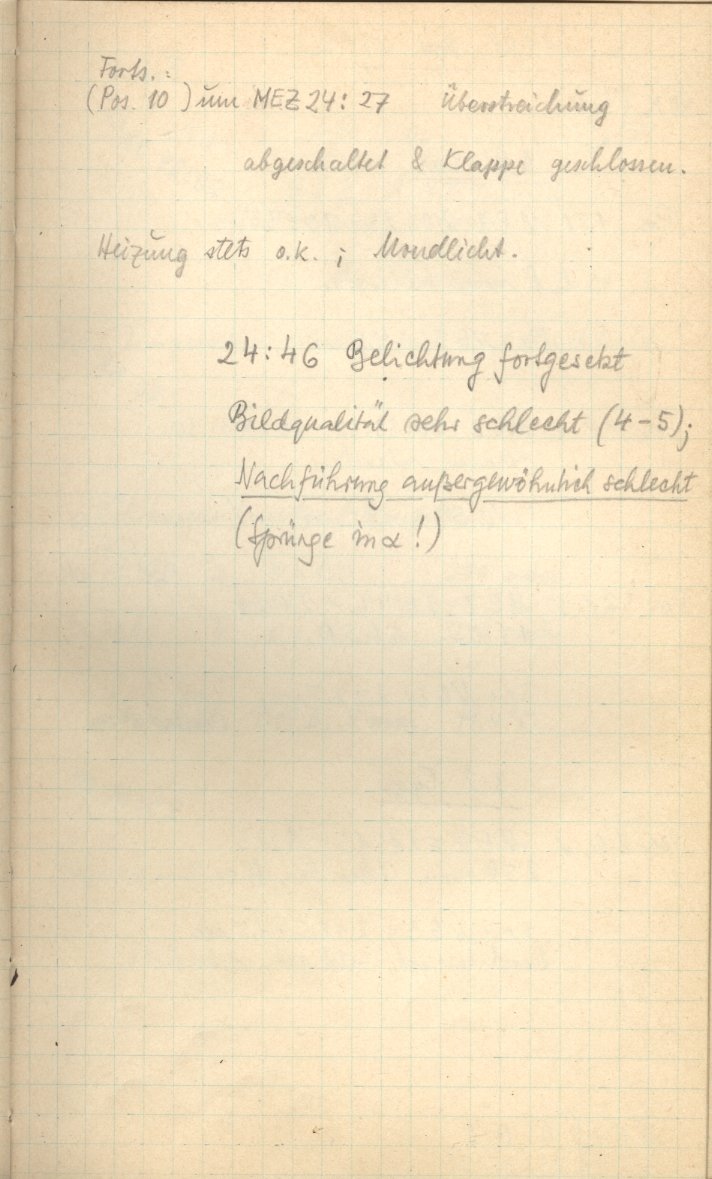 Forts.:
(Pos. 10) um MEZ 24:27 Überstreichung
abgeschaltet & Klappe geschlossen.
Heizung stets o.k. ; Mondlicht.
24:46 Belichtung fortgesetzt
Bildqualität sehr schlecht (4-5);
Nachführung außergewöhnlich schlecht
(Sprünge in α!)